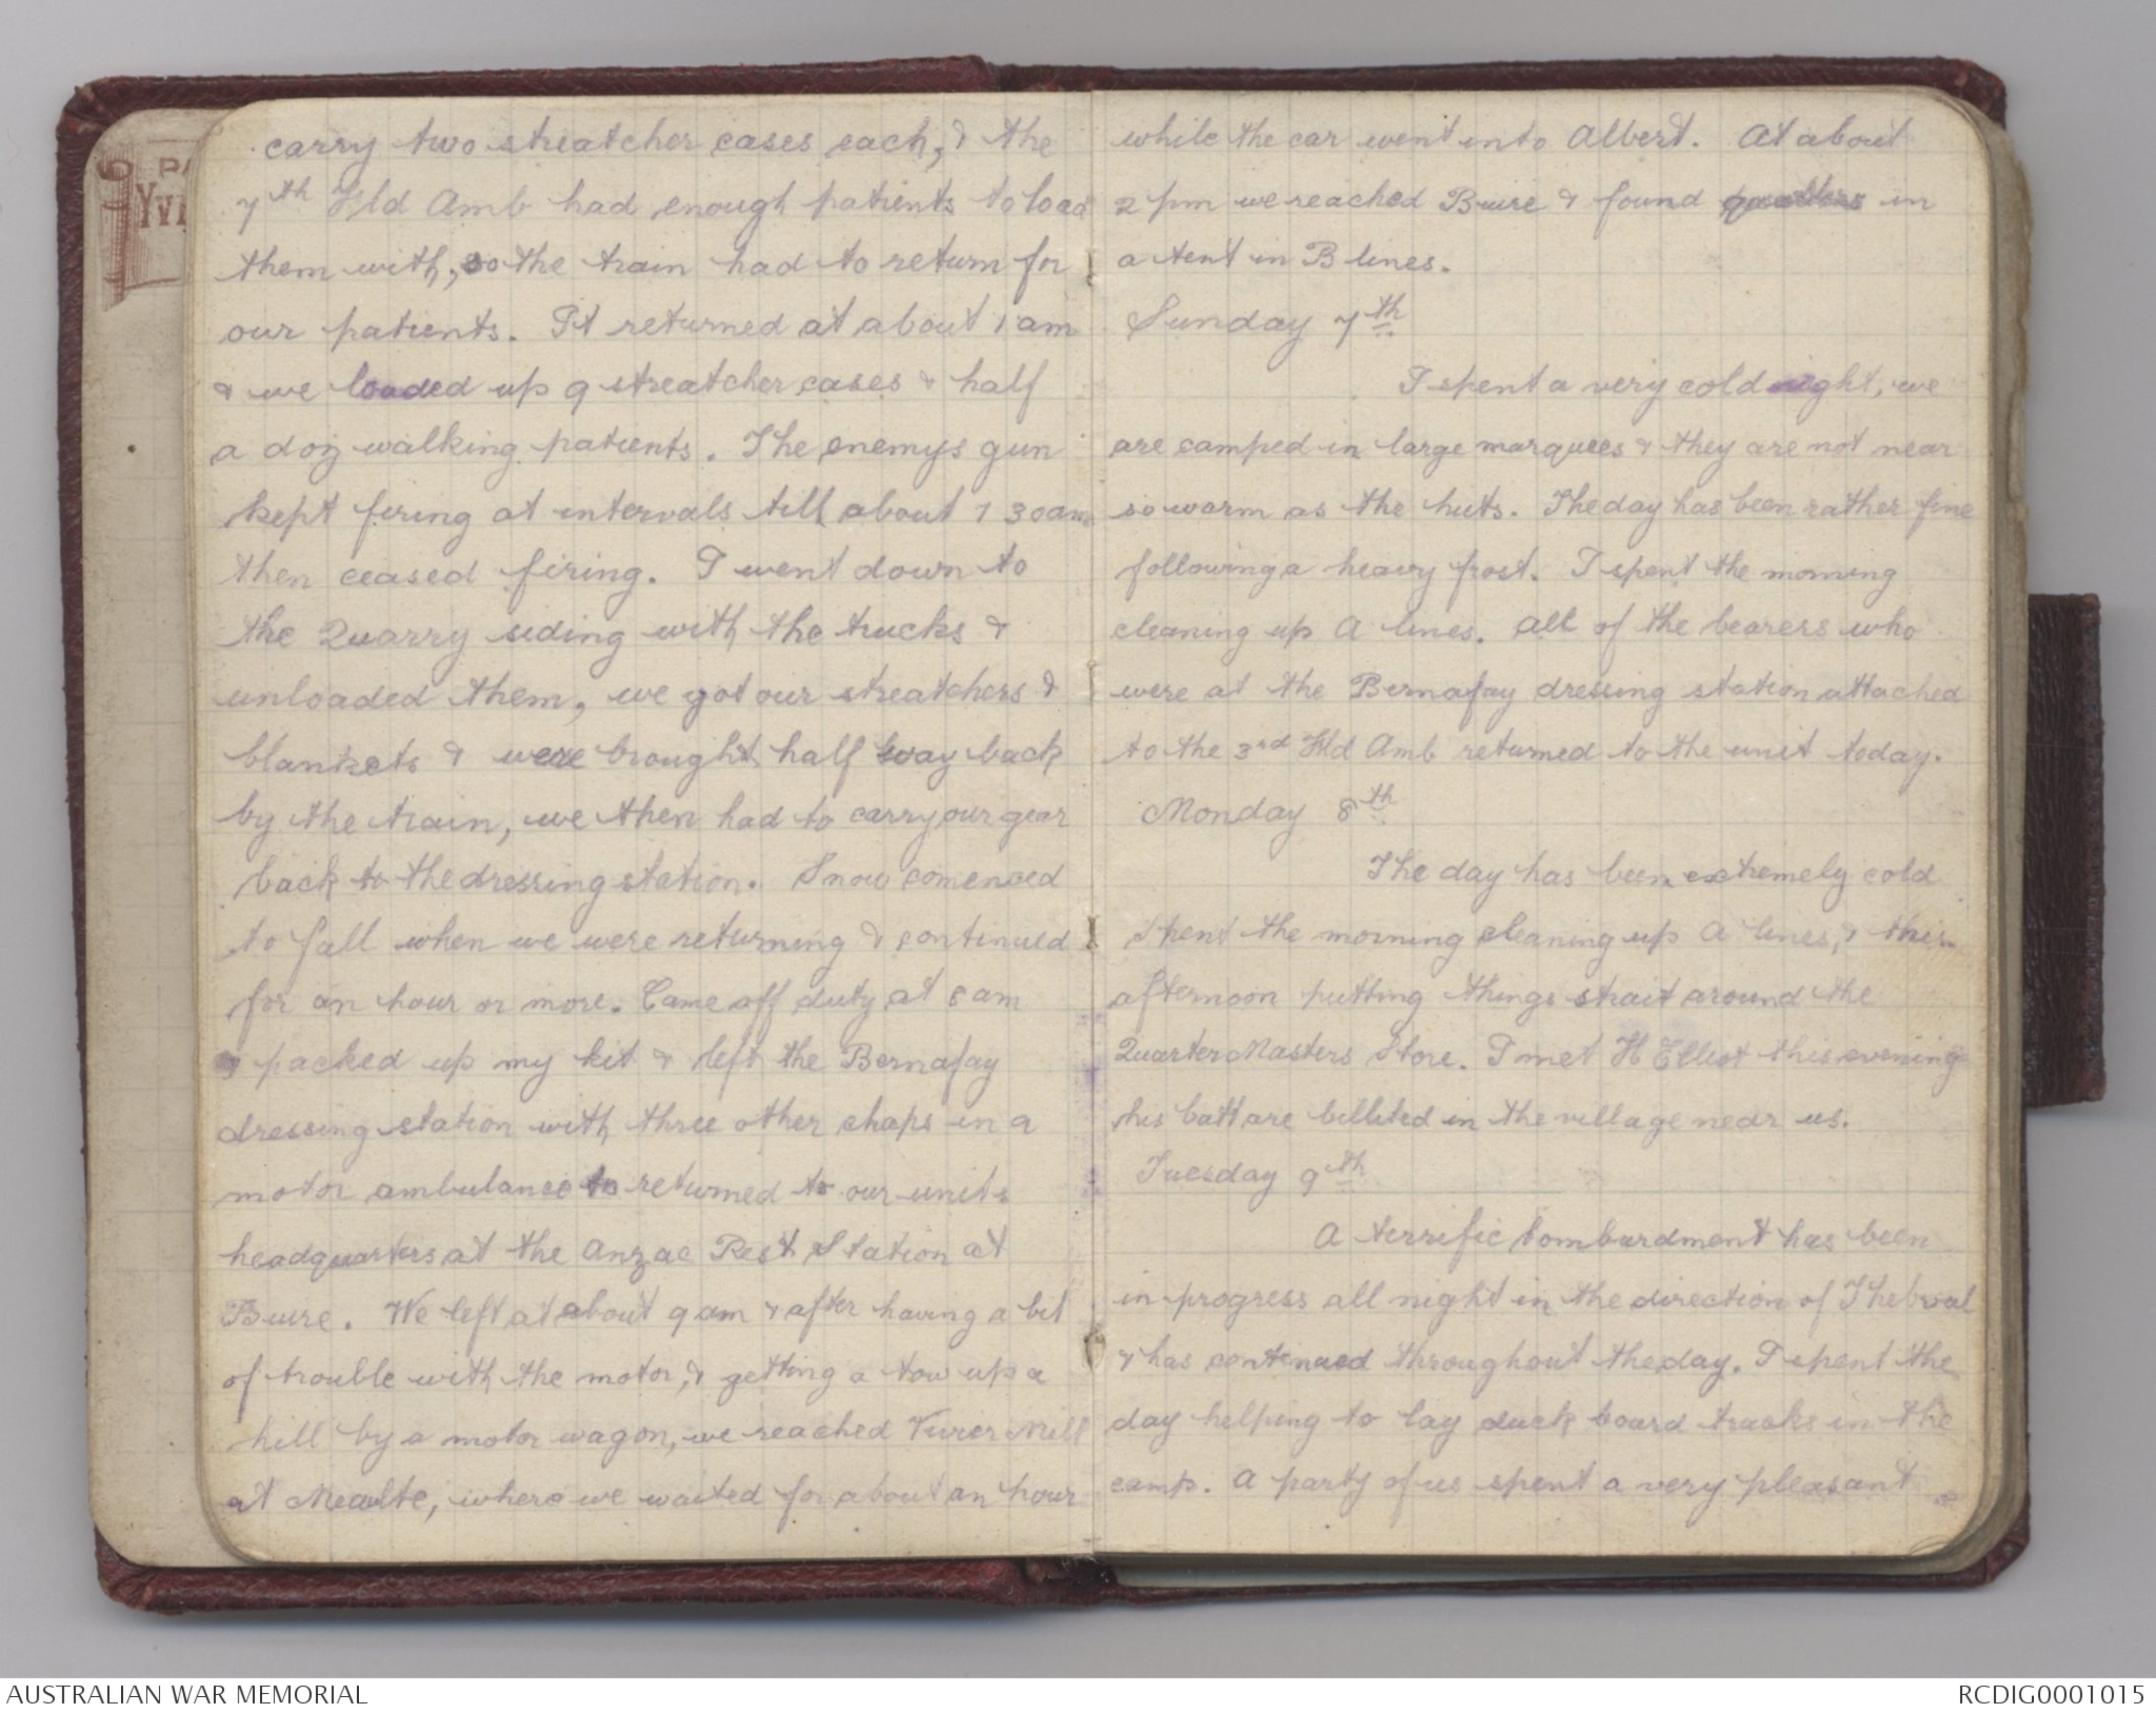 carry two streatcher cases each, & the
7th Fld Amb had enough patients to load
them with, so the train had to return for
our patients. It returned at about 1 am
& we loaded up 9 streatcher cases & half
a doz walking patients. The enemys gun
kept firing at intervals till about 1 30am
then ceased firing. I went down to
the Quarry siding with the trucks &
unloaded them, we got our streatchers &
blankets & were brought half way back
by the train, we then had to carry our gear
back to the dressing station. Snow comenced
to fall when we were returning & continued
for an hour or more. Came off duty at 8 am
packed up my kit & left the Bernafay
dressing station with three other chaps in a
motor ambulance to returned to our units
headquarters at the Anzac Rest Station at
Buire. We left at about 9 am & after having a bit
of trouble with the motor, & getting a tow up a
hill by a motor wagon, we reached Vivier Mill
at Mealte, where we waited for about an hour
while the car went into Albert. At about
2 pm we reached Buire & found quarters in
a tent in B lines.
Sunday 7th
I spent a very cold night, we
are camped in large marquees & they are not near
so warm as the huts. The day has been rather fine
following a heavy frost. I spent the morning
cleaning up A lines. All of the bearers who
were at the Bernafay dressing station attached
to the 3rd Fld Amb returned to the unit today.
Monday 8th
The day has been extremely cold
Spent the morning cleaning up A lines, & this
afternoon putting things strait around the
Quarter Masters Store. I met H Elliot this evening
his batt are billited in the village near us.
Tuesday 9th
A terrific bombardment has been
in progress all night in the direction of Thebval
& has continued throughout the day. I spent the
day helping to lay duck board tracks in the
camp. A party of us spent a very pleasant
PA
YVI
AUSTRALIAN WAR MEMORIAL
RCDIG0001015